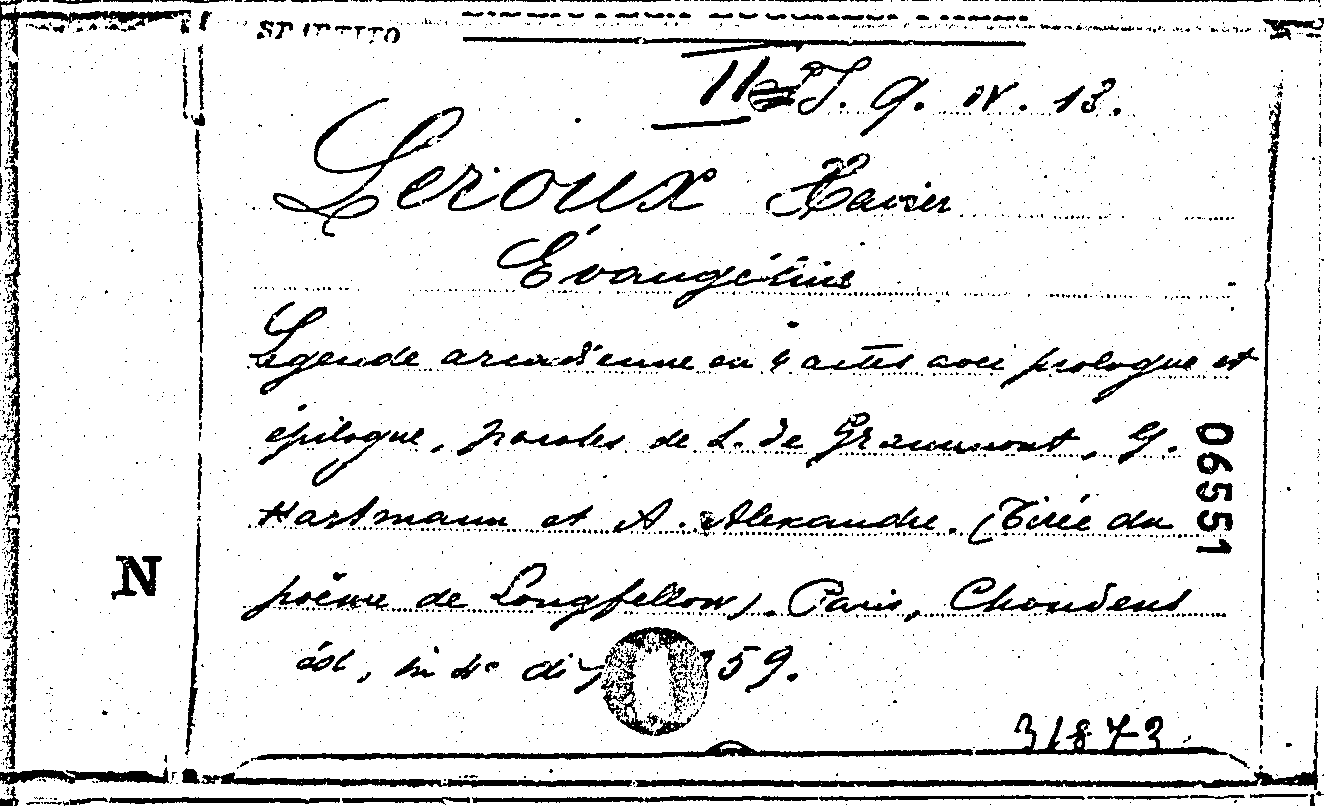 SPARTITO
II J. 9. IV. 13.
Leroux Xavier
Évangéline
Légende arcadienne en 4 actes avec prologue et
épilogue, paroles de L. de Grammont, G.
Hartmann et A. Alexandre. (Tirée du
poème de Longfellow). Paris, Choudens
éd, in 4° di p. 359.
06551
N
31873